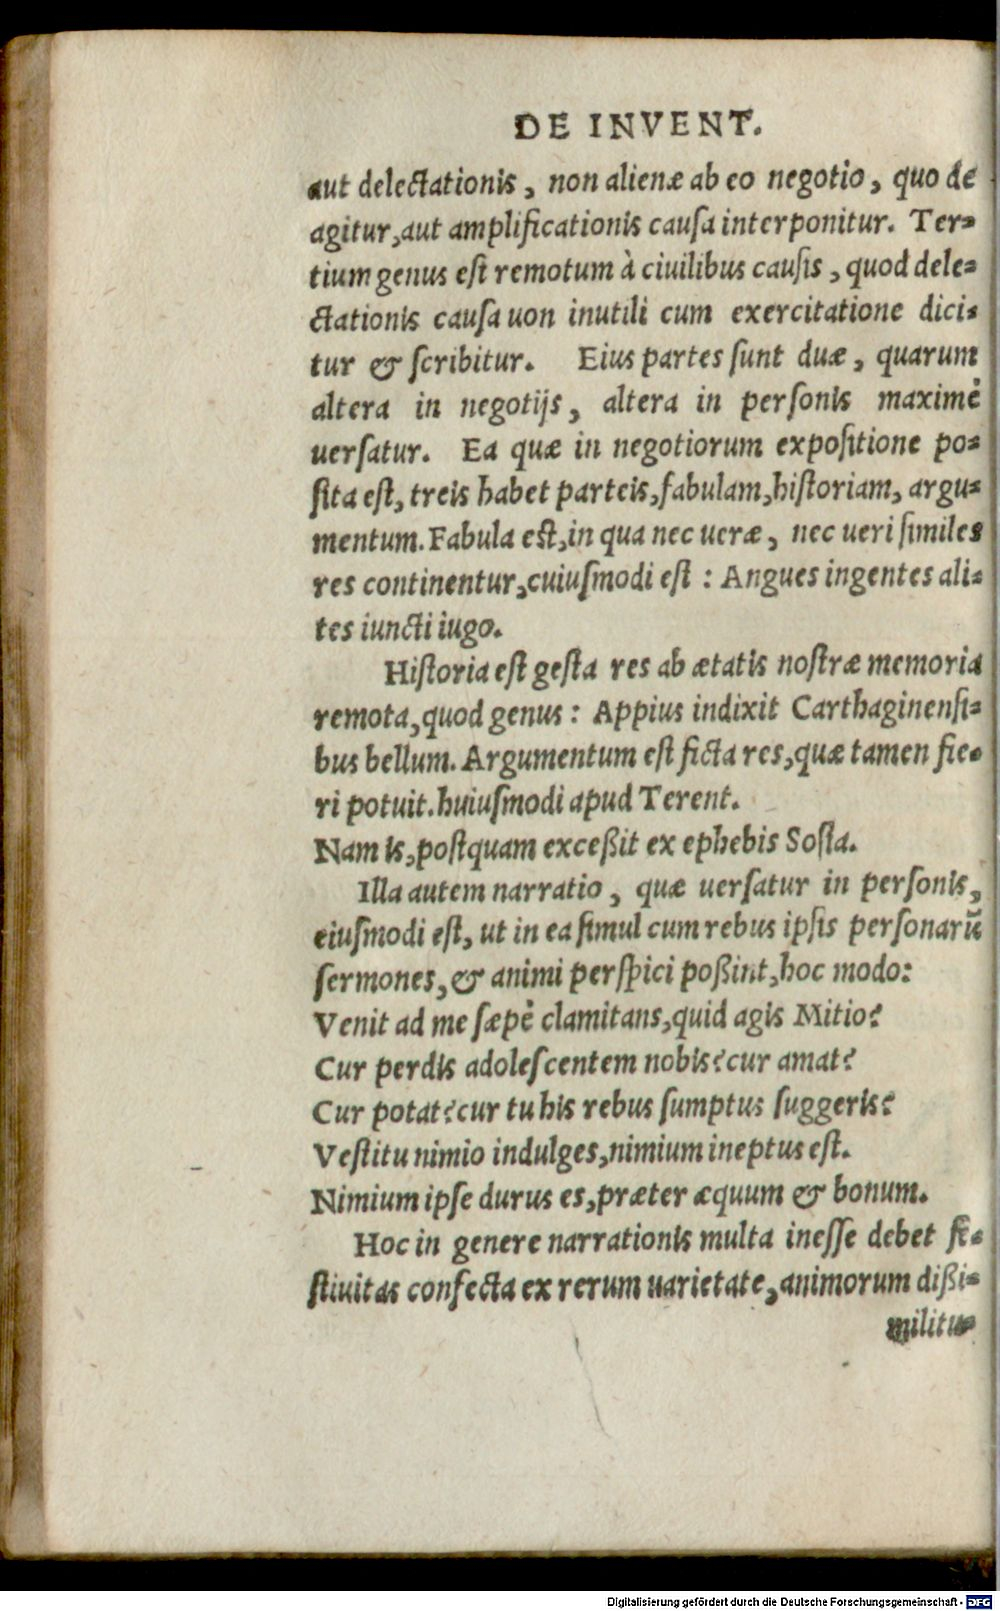 DE INVENT.
aut delectationis, non alienæ ab eo negotio, quo de
agitur, aut amplificationis cauſa interponitur. Ter-
tium genus eſt remotum à ciuilibus cauſis, quod dele-
ctationis cauſa uon inutili cum exercitatione dici-
tur & ſcribitur. Eius partes ſunt duæ, quarum
altera in negotijs, altera in perſonis maximè
uerſatur. Ea quæ in negotiorum expoſitione po-
ſita eſt, treis habet parteis, fabulam, hiſtoriam, argu-
mentum. Fabula eſt, in qua nec ueræ, nec ueri ſimiles
res continentur, cuiuſmodi eſt : Angues ingentes ali-
tes iuncti iugo.
Hiſtoria eſt geſta res ab ætatis noſtræ memoria
remota, quod genus : Appius indixit Carthaginenſi-
bus bellum. Argumentum eſt ficta res, quæ tamen fie-
ri potuit. huiuſmodi apud Terent.
Nam is, poſtquam exceßit ex ephebis Soſia.
Illa autem narratio, quæ uerſatur in perſonis,
eiuſmodi eſt, ut in ea ſimul cum rebus ipſis perſonarū
ſermones, & animi perſpici poßint, hoc modo:
Venit ad me ſæpè clamitans, quid agis Mitio?
Cur perdis adoleſcentem nobis? cur amat?
Cur potat? cur tu his rebus ſumptus ſuggeris?
Veſtitu nimio indulges, nimium ineptus eſt.
Nimium ipſe durus es, præter æquum & bonum.
Hoc in genere narrationis multa ineſſe debet fe-
ſtiuitas confecta ex rerum uarietate, animorum dißi-
militu-
Digitalisierung gefördert durch die Deutsche Forschungsgemeinschaft - DFG